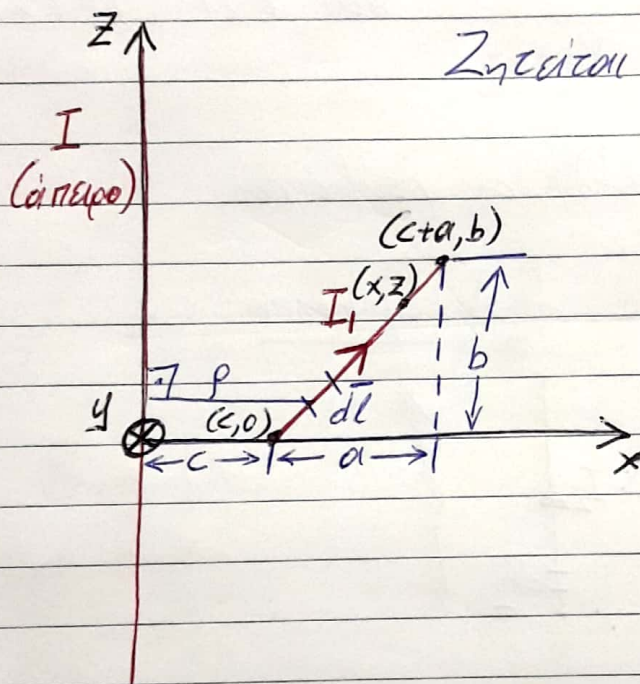 Z
Ζητείται
I
(άπειρο)
(c+a,b)
(x,z)
I₁
b
ρ
dl
y
(c,0)
c
a
x